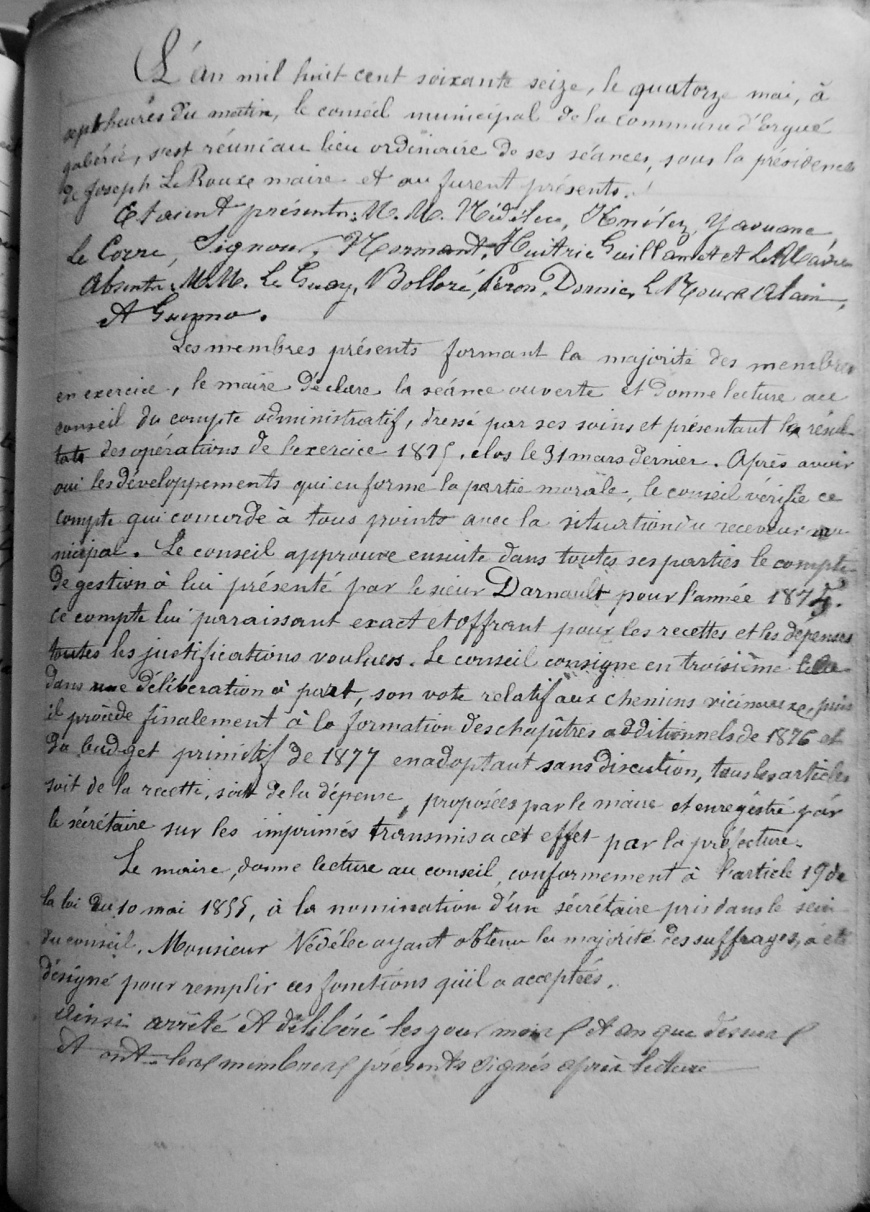 L'an mil huit cent soixante seize, le quatorze mai, à
sept heures du matin, le conseil municipal de la commune d'Ergué
gabéric, s'est réuni au lieu ordinaire de ses séances, sous la présidence
de Joseph Le Roux maire et où furent présents.
Etaient présents: M.M. Nédélec, Yaouanc
Le Corre, Signour, Normant, Huitric Guillamet et Le
Absents M.M. Le Guay, Bolloré, Péron, Le Roux Alain,
Et
Les membres présents formant la majorité des membres
en exercice, le maire déclare la séance ouverte et donne lecture au
conseil du compte administratif, dressé par ses soins et présentant les résul-
tats des opérations de l'exercice 1875, clos le 31 mars dernier. Après avoir
oui les développements qui en forme la partie morale, le conseil vérifie ce
compte qui concorde à tous points avec la situation du receveur mu-
nicipal. Le conseil approuve ensuite dans toutes ses parties le compte
de gestion à lui présenté par le sieur Darnault pour l'année 1875.
Ce compte lui paraissant exact et offrant pour les recettes et les dépenses
toutes les justifications voulues. Le conseil consigne en troisième lieu
dans une délibération à part, son vote relatif aux chemins vicinaux, puis
il procède finalement à la formation des chapitres additionnels de 1876 et
du budget primitif de 1877 en adoptant sans discution, tous les articles
soit de la recette, soit de la dépense, proposées par le maire et enregistré par
le sécrétaire sur les imprimés transmis a cet effet par la préfecture.
Le maire, donne lecture au conseil, conformement à l'article 19 de
la loi du 10 mai 1855, à la nomination d'un sécrétaire pris dans le sein
du conseil. Monsieur Nédélec ayant obtenu la majorité des suffrages, a été
désigné pour remplir ces fonctions qu'il a acceptées.
Ainsi arrêté et délibéré les jour mois et an que dessus
Et ont les membres présents signés après lecture